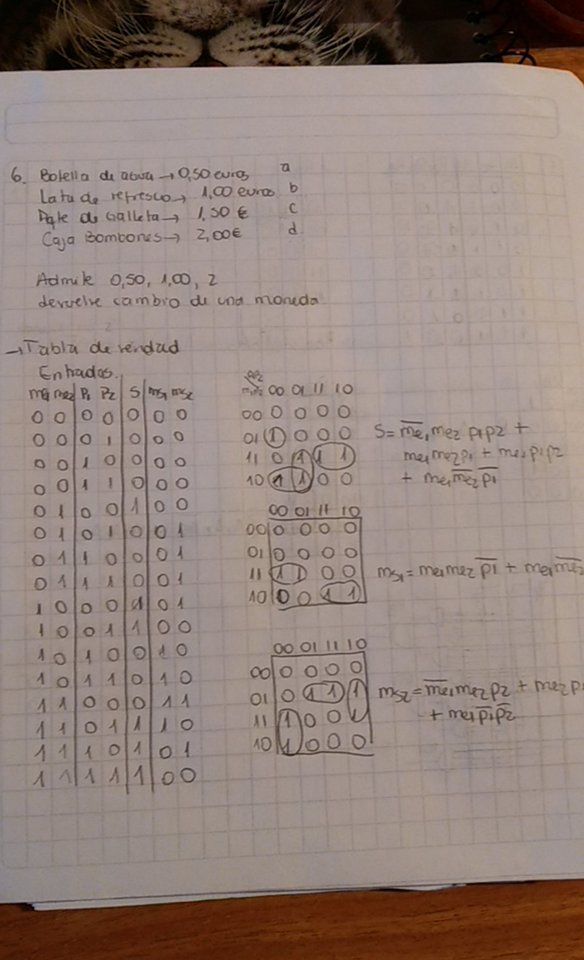 6. Botella de agua → 0,50 euros a
Lata de refresco → 1,00 euros b
Pqte de Galleta → 1,50 € c
Caja Bombones → 2,00 € d
Admite 0,50, 1,00, 2
devuelve cambio de una moneda
→ Tabla de verdad
Entradas.
me1 me2 P1 P2 S ms1 ms2
0 0 0 0 0 0 0
0 0 0 1 0 0 0
0 0 1 0 0 0 0
0 0 1 1 0 0 0
0 1 0 0 1 0 0
0 1 0 1 0 0 1
0 1 1 0 0 0 1
0 1 1 1 0 0 1
1 0 0 0 1 0 1
1 0 0 1 1 0 0
1 0 1 0 0 1 0
1 0 1 1 0 1 0
1 1 0 0 0 1 1
1 1 0 1 1 1 0
1 1 1 0 1 0 1
1 1 1 1 1 0 0
00 01 11 10
00 0 0 0 0
01 1 0 0 0
11 0 1 1 1
10 1 1 0 0
S = m̅e̅1 me2 p1 p2 +
me1 me2 p1 + me1 p1 p2
+ me1 m̅e̅2 p̅1
00 01 11 10
00 0 0 0 0
01 0 0 0 0
11 1 1 0 0
10 0 0 1 1
ms1 = me1 me2 p̅1 + me1 m̅e̅2
00 01 11 10
00 0 0 0 0
01 0 1 1 1
11 1 0 0 1
10 1 0 0 0
ms2 = m̅e̅1 me2 p2 + me2 p
+ me1 p̅1 p̅2